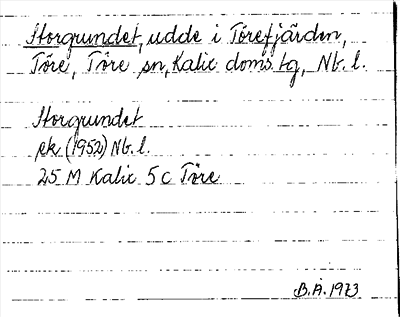 Storgrundet, udde i Törefjärden,
Töre, Töre sn, Kalix doms.tg, Nb. l.
Storgrundet
ek (1952) Nb. l.
25 M Kalix 5 c Töre
B.Å. 1973